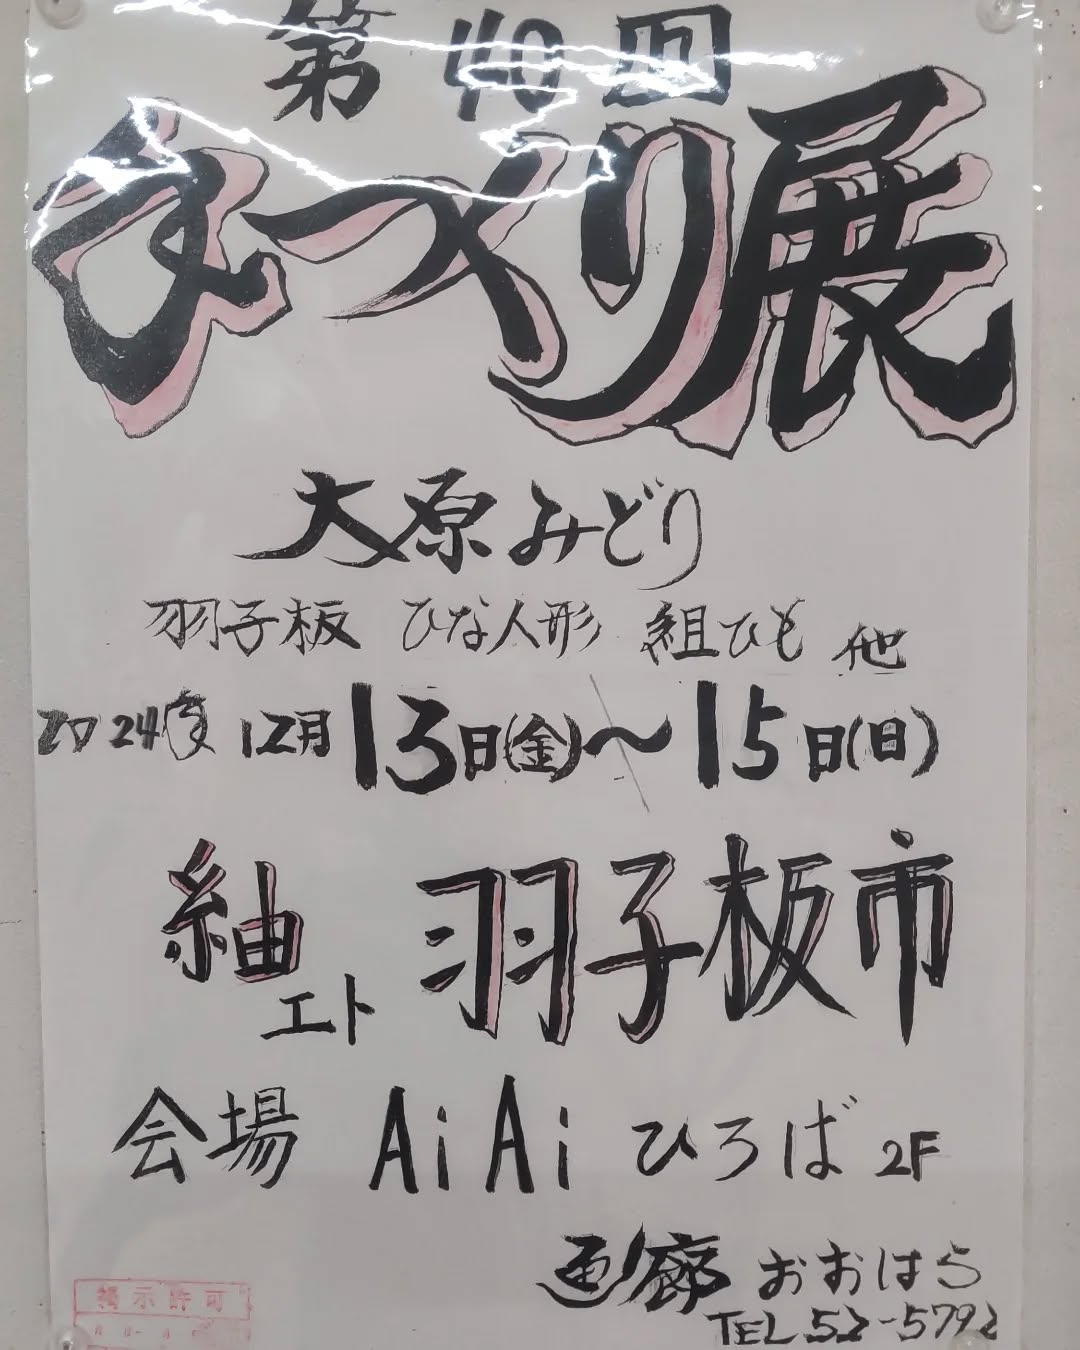 第40回
手つくり展
大原みどり
羽子板 ひな人形 組ひも 他
2024年 12月13日(金)～15日(日)
紬ェト 羽子板市
会場 AiAi ひろば 2F
画廊 おおはら
TEL 52-5792
掲示許可